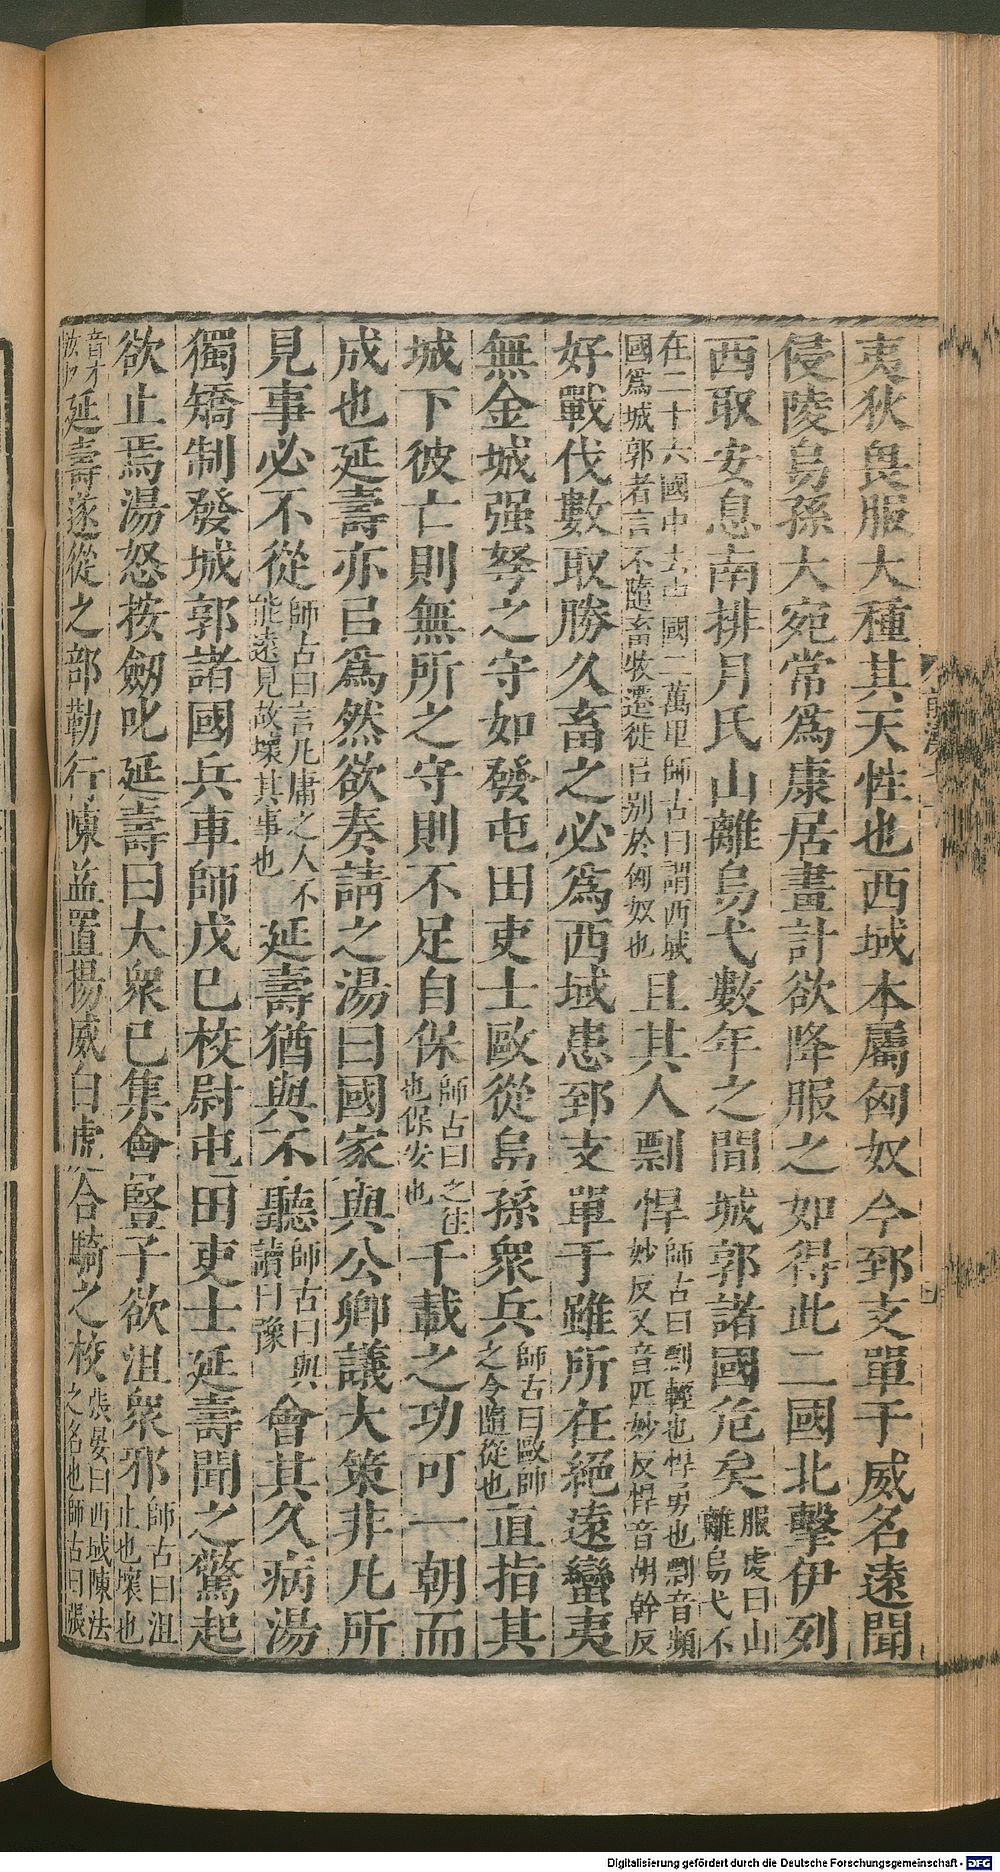 夷狄畏服大種其天性也西域本屬匈奴今郅支單于威名遠聞
侵陵烏孫大宛常爲康居畫計欲降服之如得此二國北擊伊列
西取安息南排月氏山離烏弋數年之間城郭諸國危矣服虔曰山離烏弋不
在三十六國中去中國二萬里師古曰謂西域國爲城郭者言不隨畜牧遷徙㠯别於匈奴也且其人剽悍師古曰剽輕也悍勇也剽音頻妙反又音匹妙反悍音胡幹反
好戰伐數取勝久畜之必爲西域患郅支單于雖所在絕遠蠻夷
無金城强弩之守如發屯田吏士歐從烏孫衆兵師古曰歐帥之令隨從也直指其
城下彼亡則無所之守則不足自保師古曰之往也保安也千載之功可一朝而
成也延壽亦㠯爲然欲奏請之湯曰國家與公卿議大策非凡所
見事必不從師古曰言凡庸之人不能遠見故壞其事也延壽猶與不聽師古曰與讀曰豫會其久病湯
獨矯制發城郭諸國兵車師戊巳校尉屯田吏士延壽聞之驚起
欲止焉湯怒按劒叱延壽曰大衆已集會豎子欲沮衆邪師古曰沮止也壞也
音才汝反延壽遂從之部勒行陳益置揚威白虎合騎之校張晏曰西域陳法之名也師古曰張
Digitalisierung gefördert durch die Deutsche Forschungsgemeinschaft - DFG